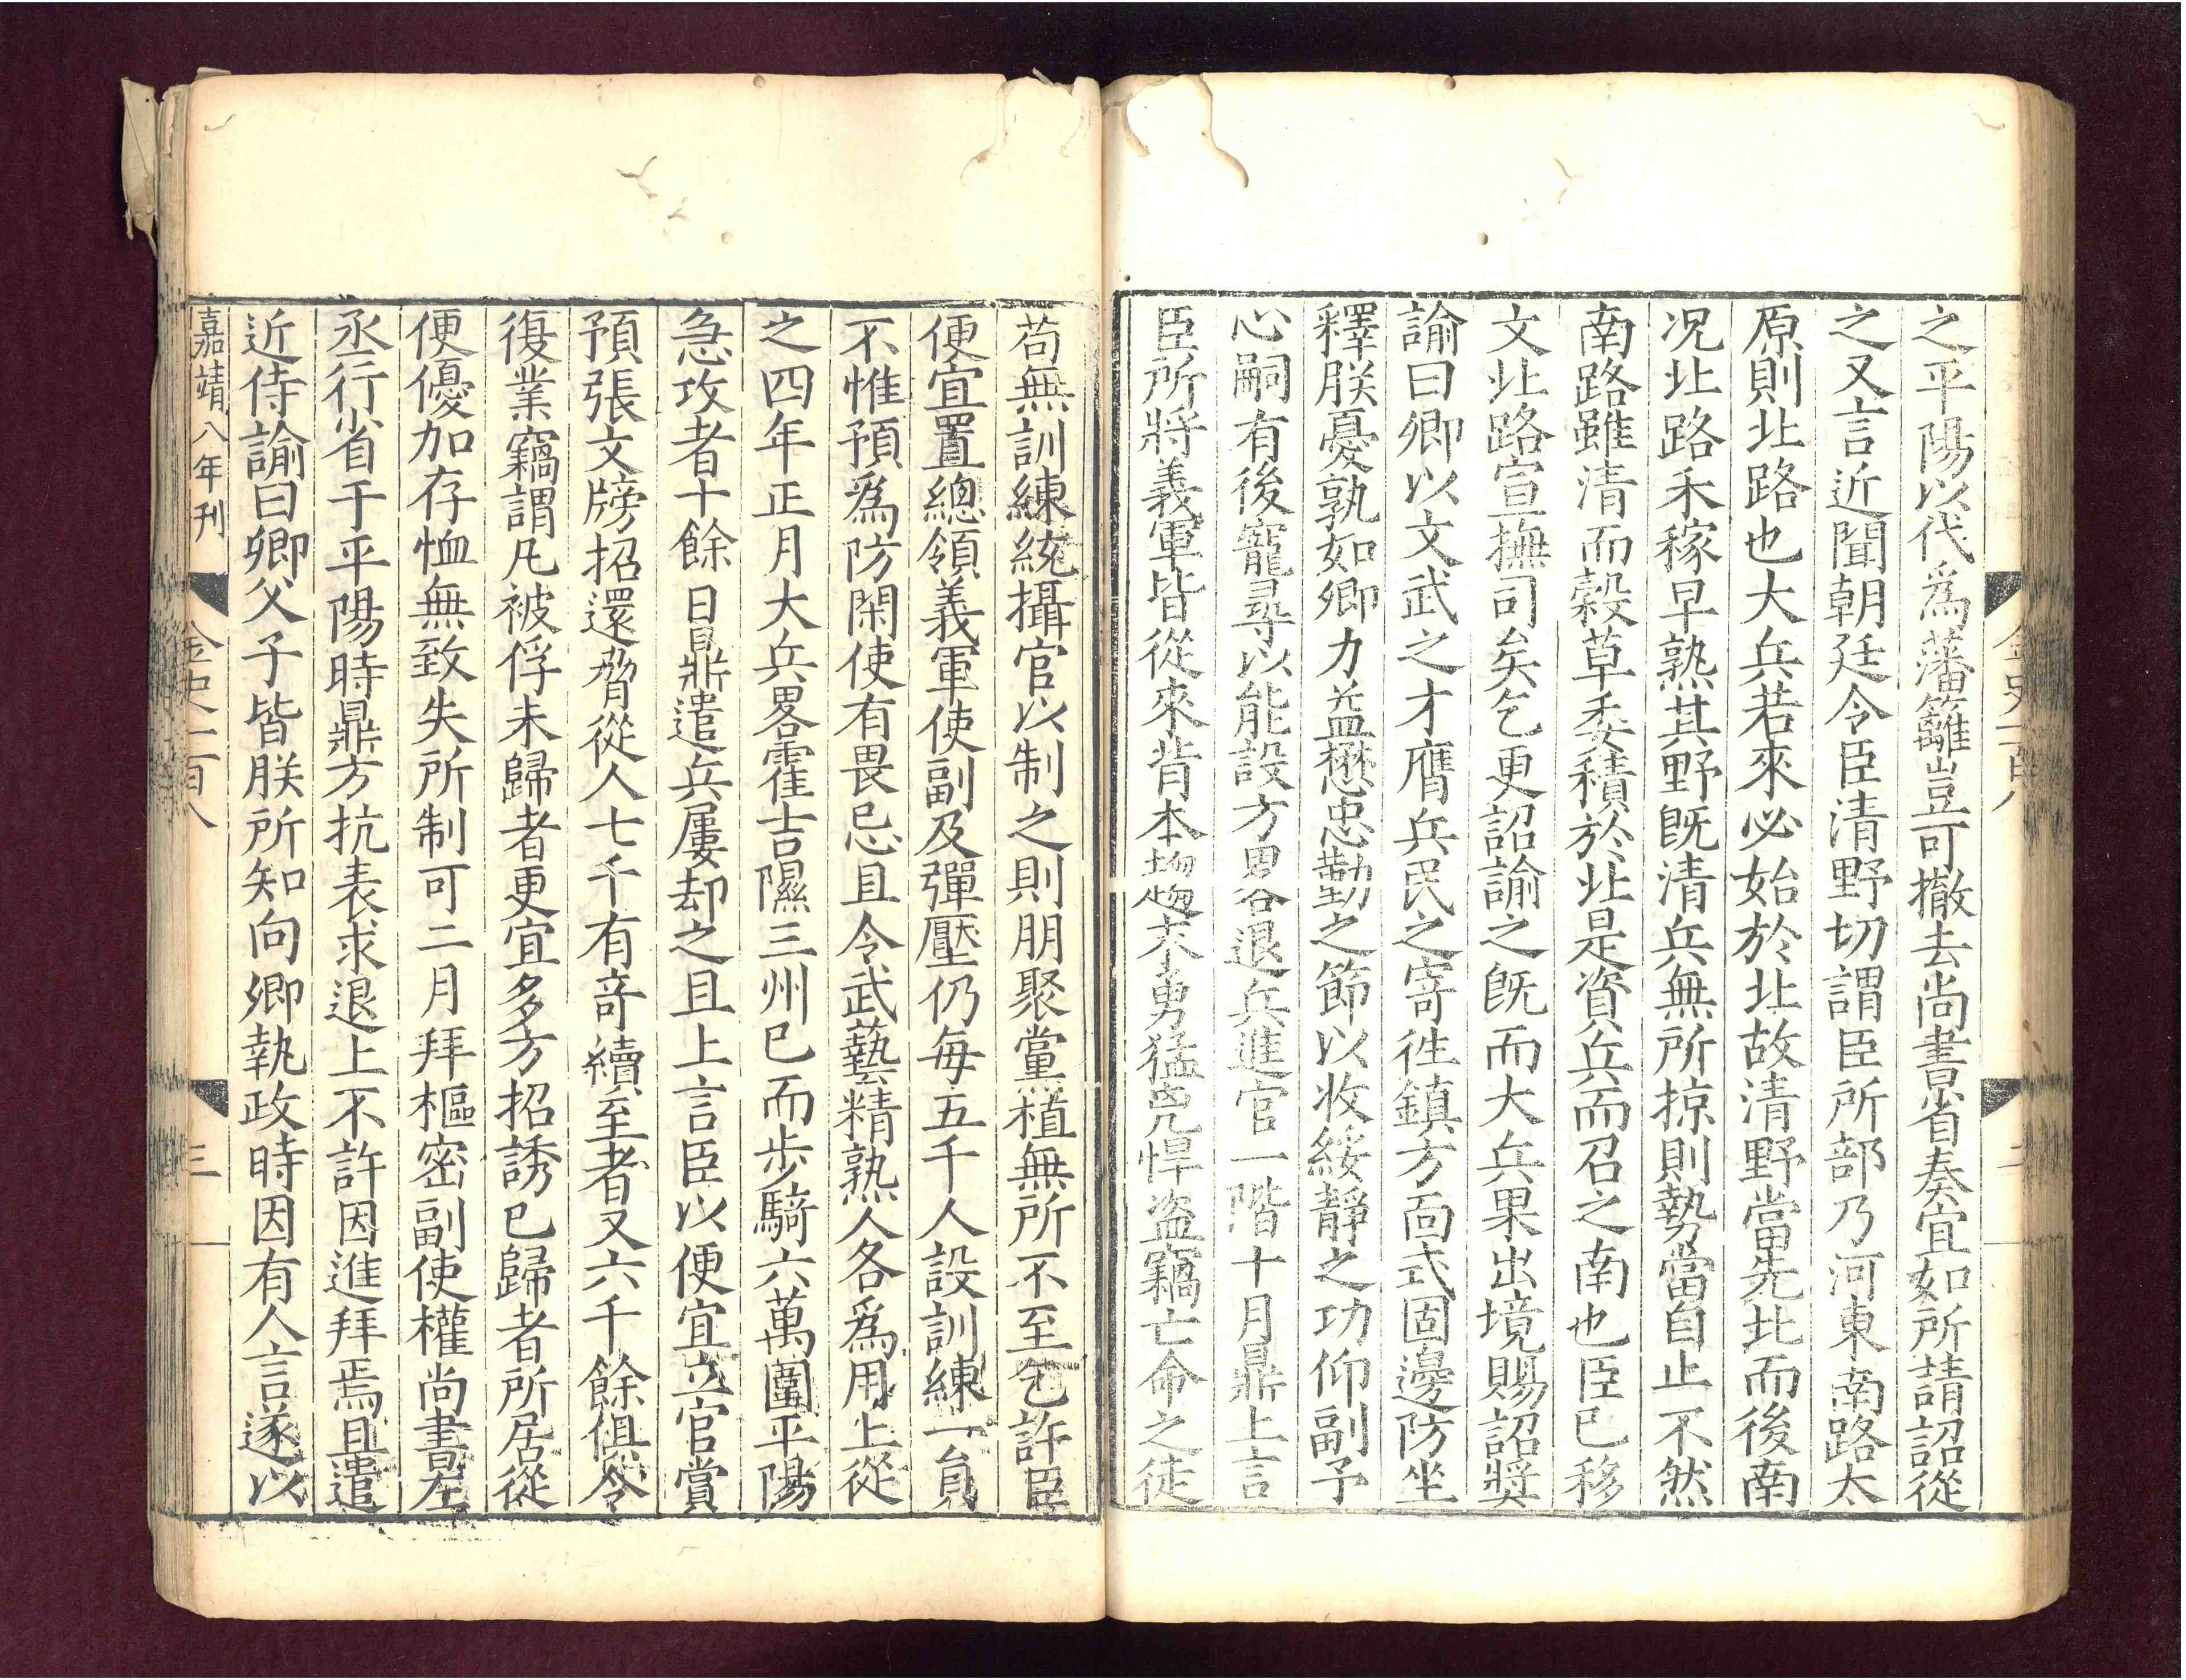 之平陽以代爲藩籬豈可撤去尚書省奏宜如所請詔從
之又言近聞朝廷令臣清野切謂臣所部乃河東南路太
原則北路也大兵若來必始於北故清野當先北而後南
况北路禾稼早熟其野既清兵無所掠則勢當自止不然
南路雖清而穀草委積於北是資兵而召之南也臣已移
文北路宣撫司矣乞更詔諭之既而大兵果出境賜詔奬
諭曰卿以文武之才膺兵民之寄徃鎮方面式固邊防坐
釋朕憂孰如卿力益懋忠勤之節以收綏靜之功仰副予
心嗣有後寵尋以能設方畧退兵進官一階十月鼎上言
臣所將義軍皆從來背本趨末勇猛兇悍盗竊亡命之徒
苟無訓練統攝官以制之則朋聚黨植無所不至乞許臣
便宜置總領義軍使副及彈壓仍每五千人設訓練一員
不惟預爲防閑使有畏忌且令武藝精熟人各爲用上從
之四年正月大兵畧霍吉隰三州已而步騎六萬圍平陽
急攻者十餘日鼎遣兵屢却之且上言臣以便宜立官賞
預張文牓招還脅從人七千有竒續至者又六千餘俱令
復業竊謂凡被俘未歸者更宜多方招誘已歸者所居從
便優加存恤無致失所制可二月拜樞密副使權尚書左
丞行省于平陽時鼎方抗表求退上不許因進拜焉且遣
近侍諭曰卿父子皆朕所知向卿執政時因有人言遂以
嘉靖八年刊
金史一百八
三